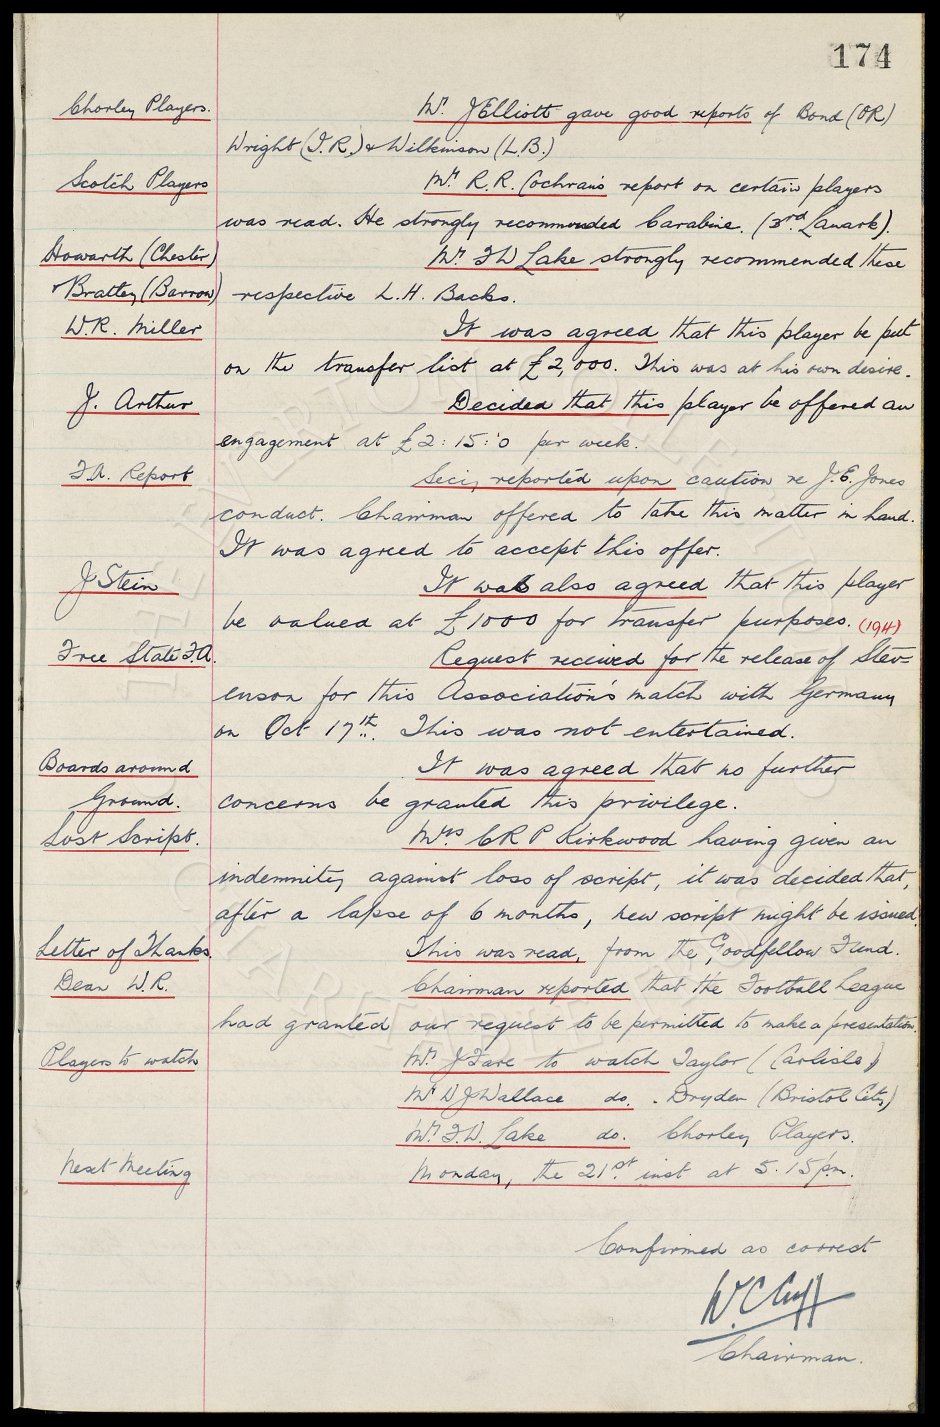 174
Chorley Players. Mr. J Elliott gave good reports of Bond (O.R)
Wright (I.R.) & Wilkinson (L.B.)
Scotch Players Mr. R.R. Cochran's report on certain players
was read. He strongly recommended Carabine. (3rd. Lanark).
Howarth (Chester) Mr. F W Lake strongly recommended these
& Brattey (Barrow) respective L.H. Backs.
W.R. Miller It was agreed that this player be put
on the transfer list at £2,000. This was at his own desire.
J. Arthur Decided that this player be offered an
engagement at £2:15:0 per week.
F.A. Report Secy. reported upon caution re J.E. Jones
conduct. Chairman offered to take this matter in hand.
It was agreed to accept this offer.
J Stein It was also agreed that this player
be valued at £1000 for transfer purposes. (194)
Free State F.A. Request received for the release of Stev=
enson for this Association's match with Germany
on Oct 17th. This was not entertained.
Boards around It was agreed that no further
Ground. concerns be granted this privilege.
Lost Script. Mrs C R P Kirkwood having given an
indemnity against loss of script, it was decided that,
after a lapse of 6 months, new script might be issued.
Letter of Thanks. This was read, from the Goodfellow Fund.
Dean W.R. Chairman reported that the Football League
had granted our request to be permitted to make a presentation.
Players to watch Mr. J Fare to watch Taylor (Carlisle)
Mr W J Wallace do. . Dryden (Bristol City)
Mr. F.W. Lake do. Chorley Players.
Next Meeting Monday, the 21st. inst at 5.15 p.m.
Confirmed as correct
W.C. Cuff
Chairman.
THE EVERTON COLLECTION
CHARITABLE TRUST